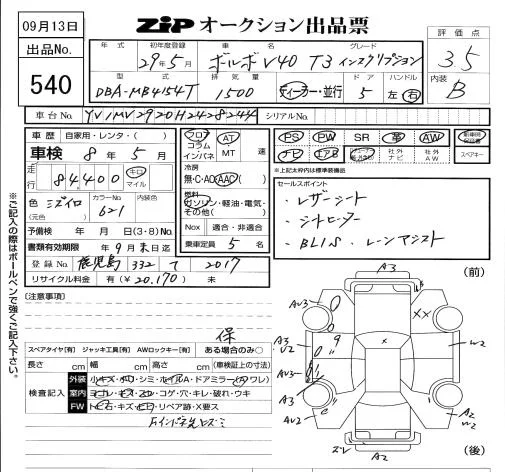 09月13日
ZIP オークション出品票
出品No. 540
年式 初年度登録 車名 グレード
29年5月 ボルボV40 T3 インスクリプション
型式 排気量 ドア ハンドル
DBA-MB4154T 1500 ディーラー・並行 5 左 右
評価点
3.5
内装
B
車台No. YV1MV2920H2428244 シリアルNo.
車歴 自家用・レンタ・( )
車検 8年5月
走行 84,400 キロ マイル
色 (元色) ミズイロ カラーNo. 621 内装色
予備検 年 月 日(3・8)No.
書類有効期限 9月末日迄
登録No. 鹿児島 332 て 2017
リサイクル料金 有(¥20.170) 未
フロア コラム インパネ AT MT 速
冷房 無・C・AC・AAC
燃料 ガソリン・軽油・電気・その他( )
Nox 適合・非適合
乗車定員 5 名
PS PW SR 革 AW
ナビ エアB 社外ナビ 社外AW
スペアキー
※上記太枠内は標準装備品
セールスポイント
・レザーシート
・シートヒーター
・BLIS・レーンアシスト
(注意事項)
保
スペアタイヤ[有] ジャッキ工具[有] AWロックキー[有] ある場合のみ○
長さ cm 幅 cm 高さ cm (車検証上の寸法)
検査記入
外装 小キズ・ホリ・シミ・ホイルA・ドアミラー(A・ワレ)
室内 ヨゴレ・キズ・スレ・コゲ・穴・キレ・破れ・ウキ
FW トビ石・キズ・ヒビ・リペア跡・X要ス
(前)
A3
A3
AU3
XX
9
A3
U2
x
W2
AU3
A3
AU2
A2
W2
A2
(後)
※ご記入の際はボールペンで強くご記入下さい。